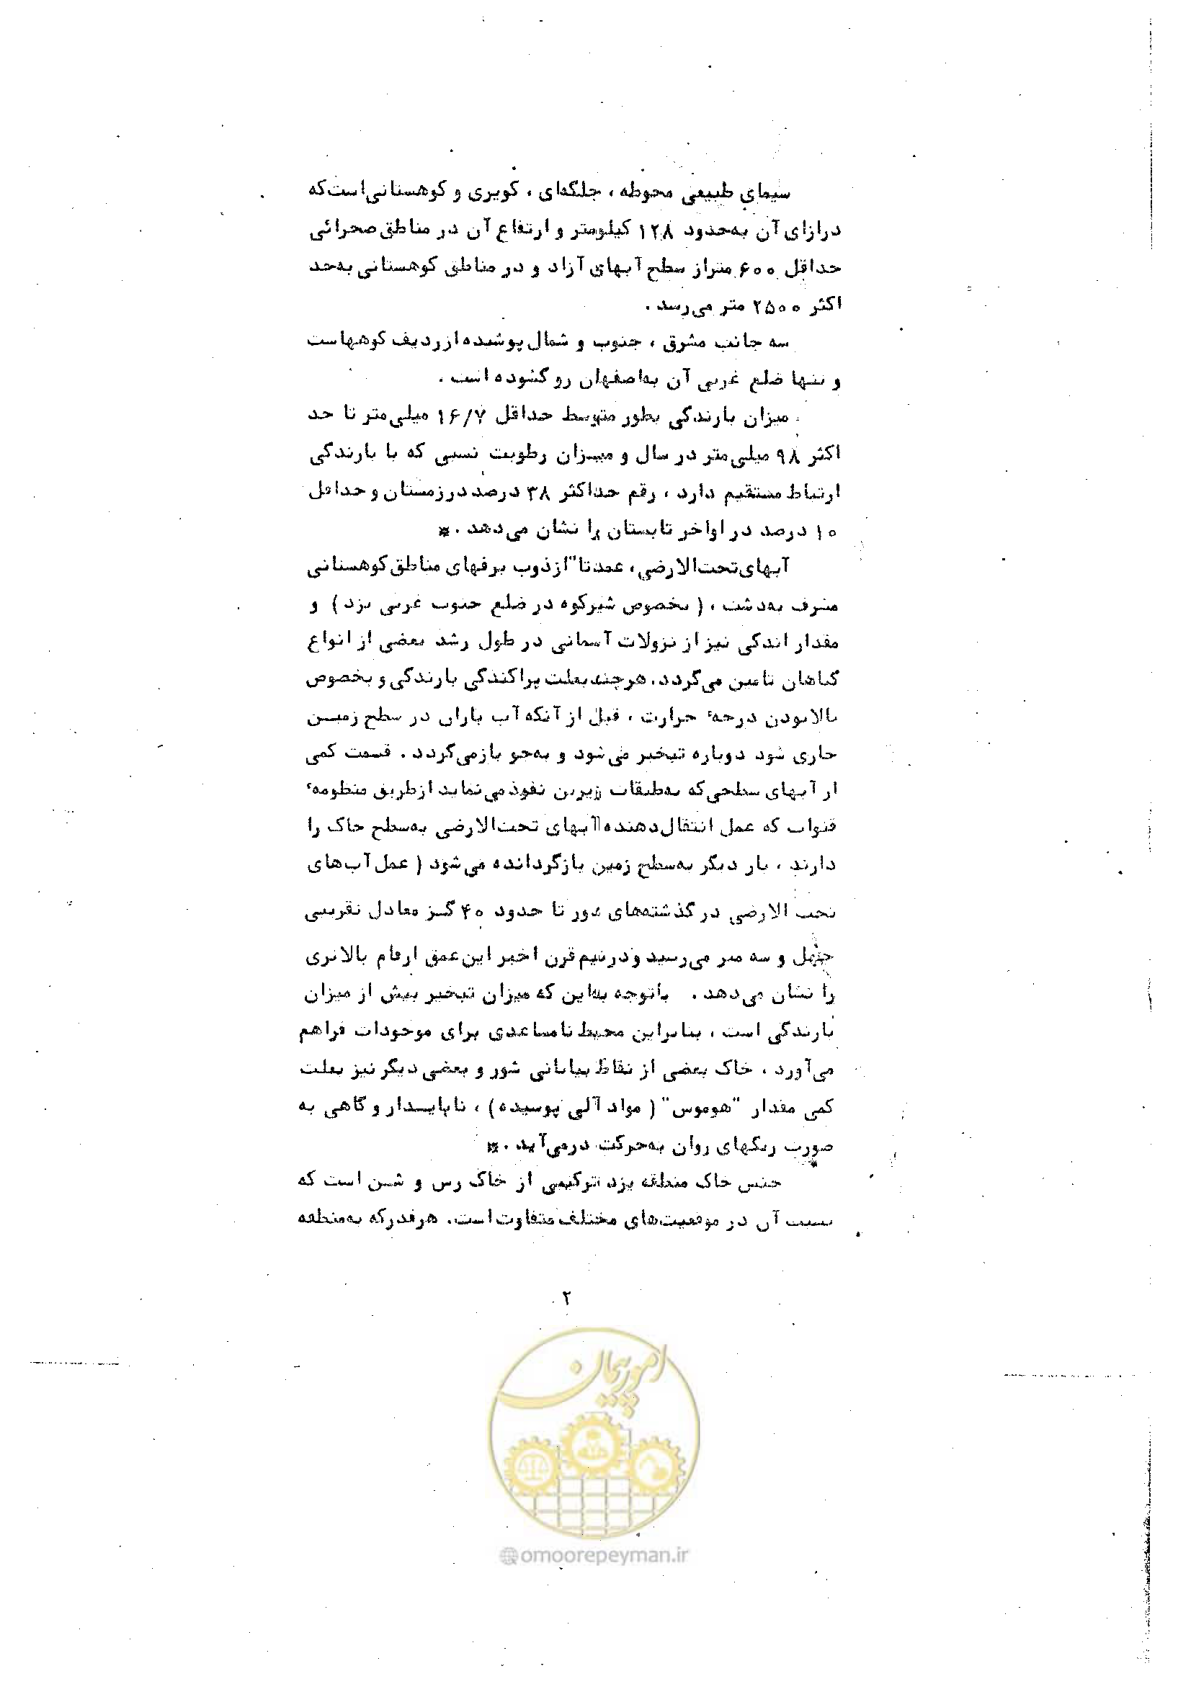 سیمای طبیعی محوطه ، جلگه‌ای ، کویری و کوهستانی‌است‌که
درازای آن به‌حدود ۱۲۸ کیلومتر و ارتفاع آن در مناطق صحرائی
حداقل ۶۰۰ متراز سطح آبهای آزاد و در مناطق کوهستانی به‌حد
اکثر ۲۵۰۰ متر می‌رسد .
سه جانب مشرق ، جنوب و شمال پوشیده از ردیف کوههاست
و تنها ضلع غربی آن به‌اصفهان رو گشوده است .
میزان بارندگی بطور متوسط حداقل ۱۶/۷ میلی‌متر تا حد
اکثر ۹۸ میلی‌متر در سال و میزان رطوبت نسبی که با بارندگی
ارتباط مستقیم دارد ، رقم حداکثر ۳۸ درصد درزمستان و حداقل
۱۰ درصد در اواخر تابستان را نشان می‌دهد .*
آبهای تحت‌الارضی ، عمدتا" از ذوب برفهای مناطق کوهستانی
مشرف به‌دشت ، ( بخصوص شیرکوه در ضلع جنوب غربی یزد ) و
مقدار اندکی نیز از نزولات آسمانی در طول رشد بعضی از انواع
گیاهان تامین می‌گردد. هرچند بعلت پراکندگی بارندگی و بخصوص
بالابودن درجهٔ حرارت ، قبل از آنکه آب باران در سطح زمین
جاری شود دوباره تبخیر می‌شود و به‌جو بازمی‌گردد . قسمت کمی
از آبهای سطحی‌که به‌طبقات زیرین نفوذ می‌نماید ازطریق منظومهٔ
قنوات که عمل انتقال‌دهنده آبهای تحت‌الارضی به‌سطح خاک را
دارند ، بار دیگر به‌سطح زمین بازگردانده می‌شود ( عمل آب‌های
تحت الارضی در گذشته‌های دور تا حدود ۴۰ گز معادل تقریبی
چهل و سه متر می‌رسید و درنیم قرن اخیر این عمق ارقام بالاتری
را نشان می‌دهد . باتوجه به‌این که میزان تبخیر بیش از میزان
بارندگی است ، بنابراین محیط نامساعدی برای موجودات فراهم
می‌آورد ، خاک بعضی از نقاط بیابانی شور و بعضی دیگر نیز بعلت
کمی مقدار "هوموس" ( مواد آلی پوسیده ) ، ناپایدار و گاهی به
صورت ریگهای روان به‌حرکت درمی‌آید .*
جنس خاک منطقه یزد ترکیبی از خاک رس و شن است که
نسبت آن در موقعیت‌های مختلف متفاوت است. هرقدرکه به‌منطقه
۲
امور پیمان
@omoorepeyman.ir